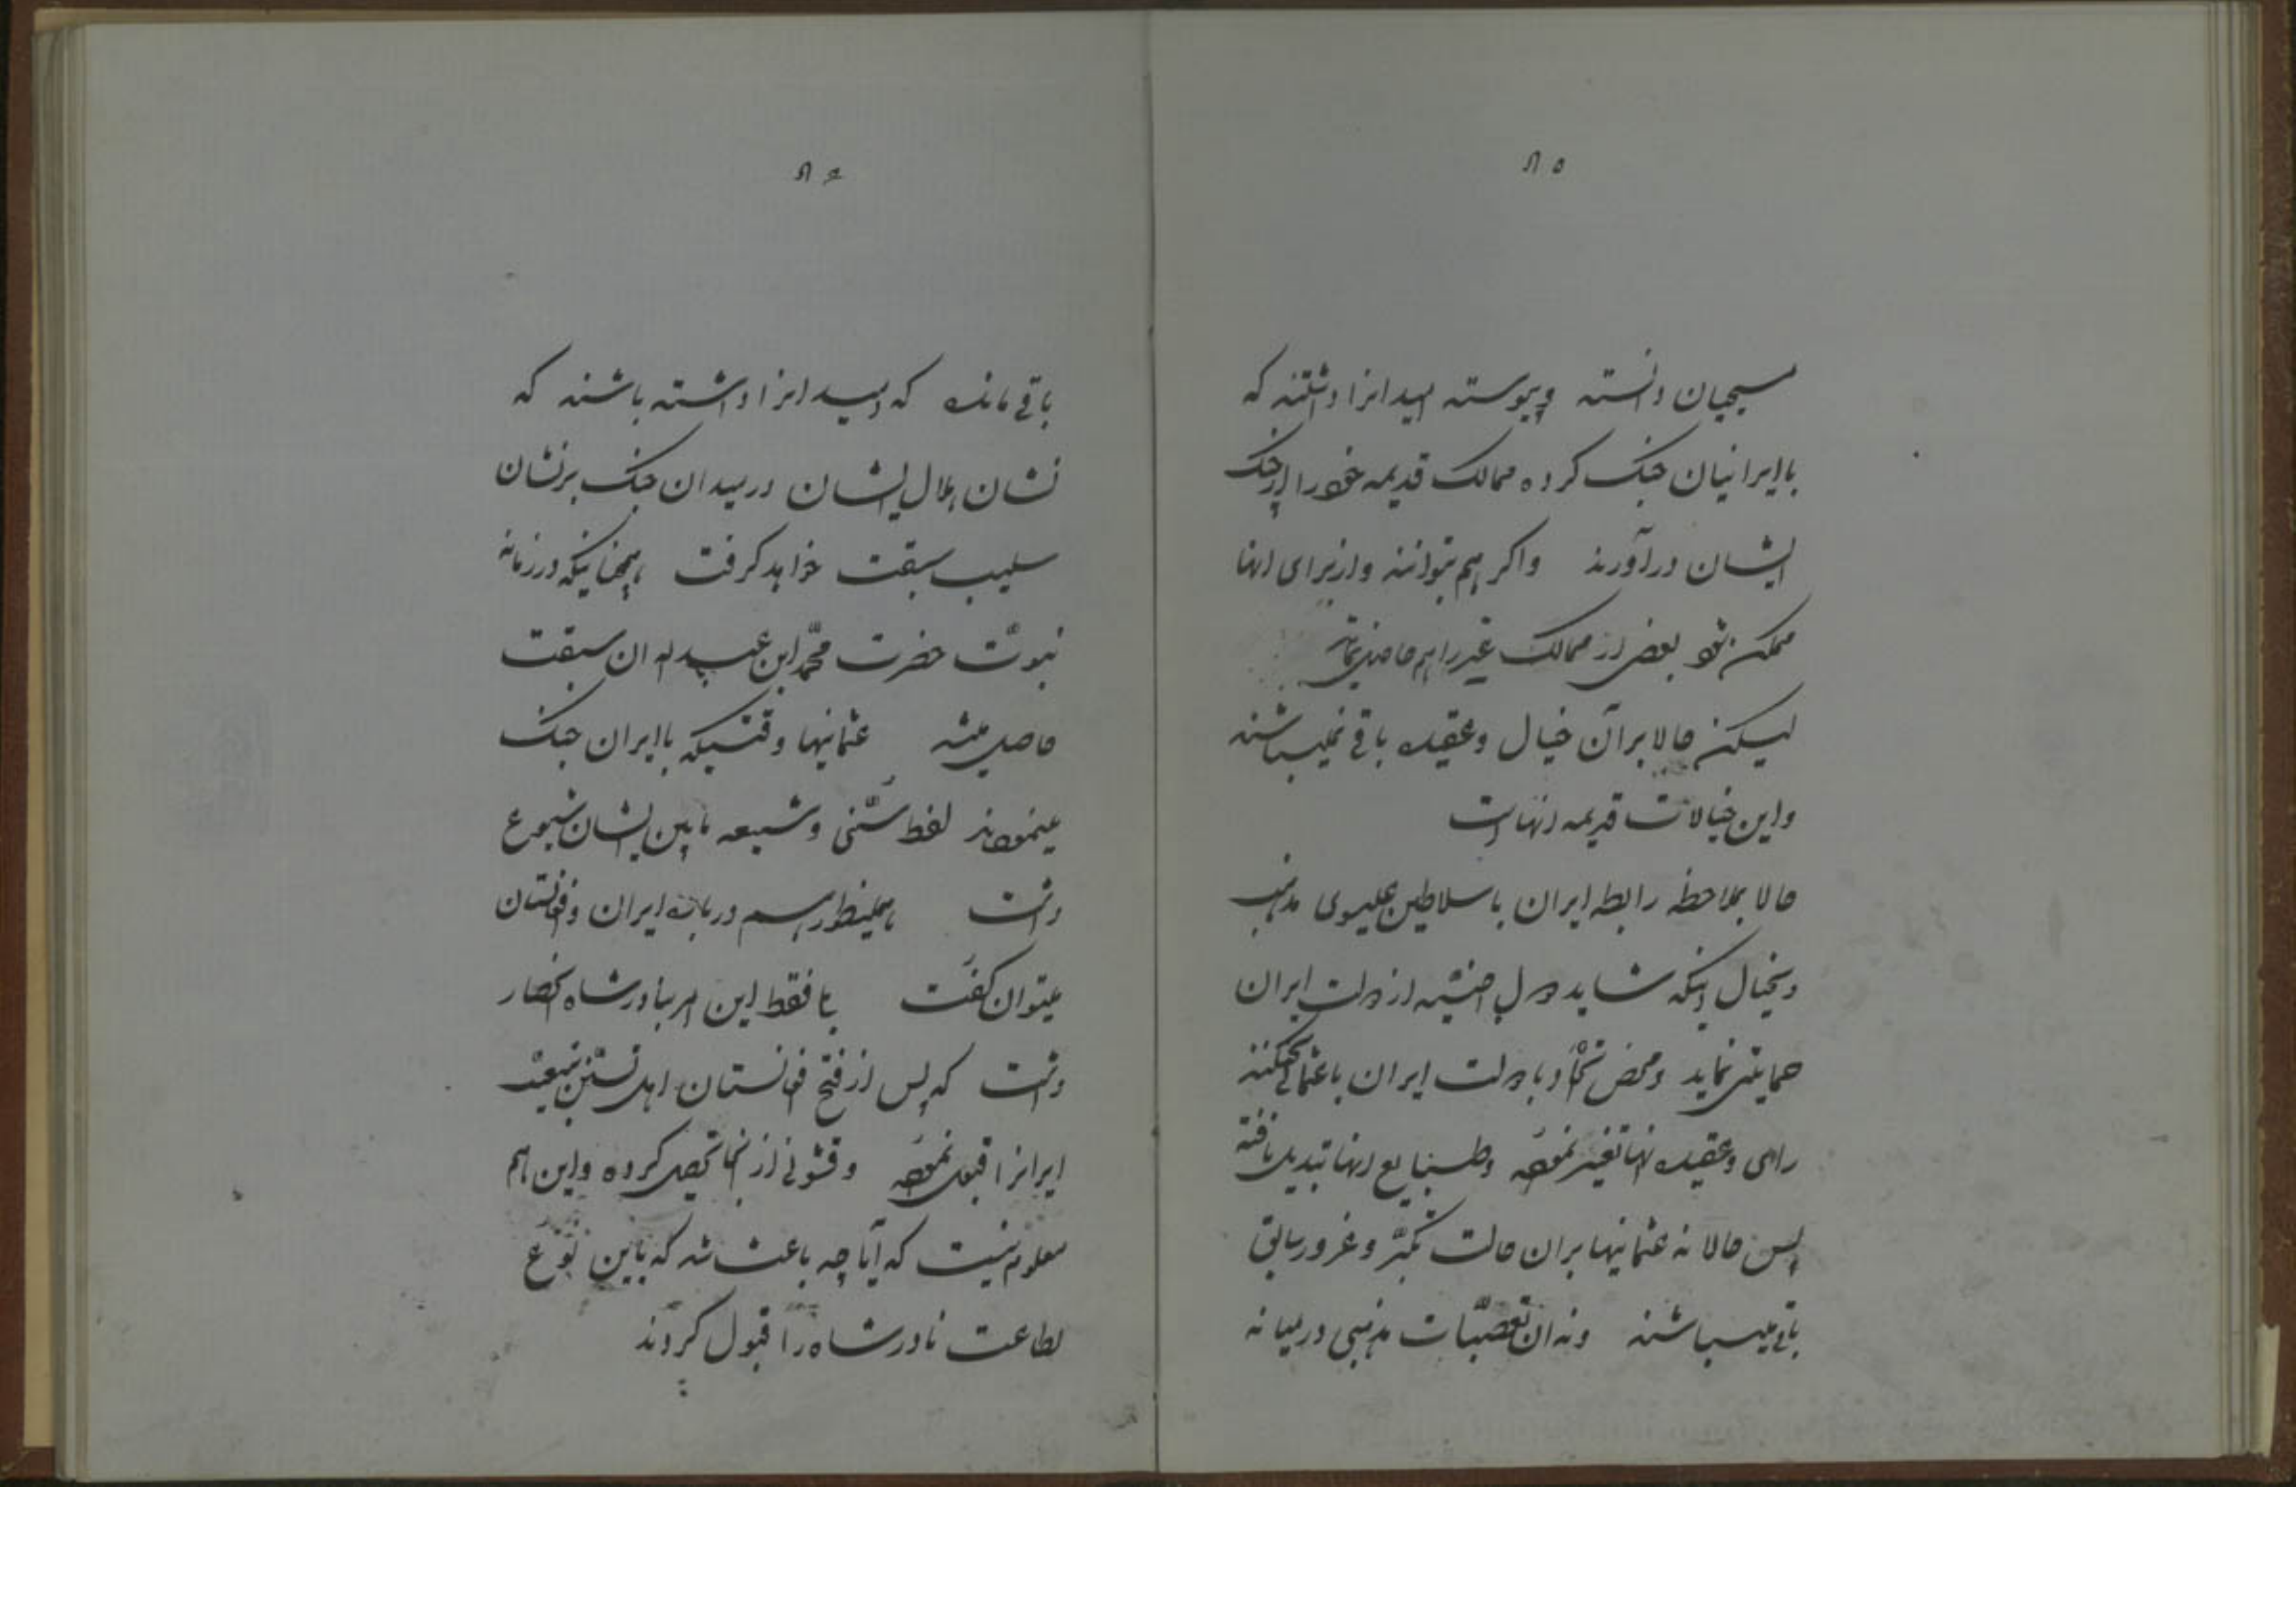 ۸۵
مسیحیان دانسته و پیوسته امید انرا داشتند که
با ایرانیان جنک کرده ممالک قدیمه خود را از چنک
ایشان درآورند واکر هم بتوانند واز برای انها
ممکن شود بعضی از ممالک غیر را هم حاصل نمایند
لیکن حالا بر آن خیال وعقیده باقی نمیباشند
واین خیالات قدیمه انها است
حالا بملاحظه رابطه ایران با سلاطین عیسوی مذهب
وبخیال اینکه شاید دول اجنبیه از دولت ایران
حمایتی نماید ومحض اتحاد با دولت ایران با عثمانی جنک کنند
رای وعقیده انها تغییر نموده وطبایع انها تبدیل یافته
پس حالا نه عثمانیها بران حالت تکبّر وغرور سابق
باقی میباشند ونه ان تعصّبات مذهبی در میانه
۸۶
باقی مانده که امید انرا داشته باشند که
نشان هلال ایشان در میدان جنک بر نشان
سلیب سبقت خواهد کرفت همچنانیکه در زمانه
نبوّت حضرت محمّد ابن عبدالله ان سبقت
حاصل میشد عثمانیها وقتیکه با ایران جنک
مینمودند لفظ سُنّی وشیعه مابین ایشان شیوع
داشت همینطور هم درباره ایران وافغانستان
میتوان کفت یا فقط این امر بنادرشاه انحصار
داشت که پس از فتح افغانستان اهل تسنّن تبعیّت
ایرانرا قبول نموده وقشونی از انجا تحصیل کرده واین هم
معلوم نیست که آیا چه باعث شد که باین نوع
اطاعت نادرشاه را قبول کردند